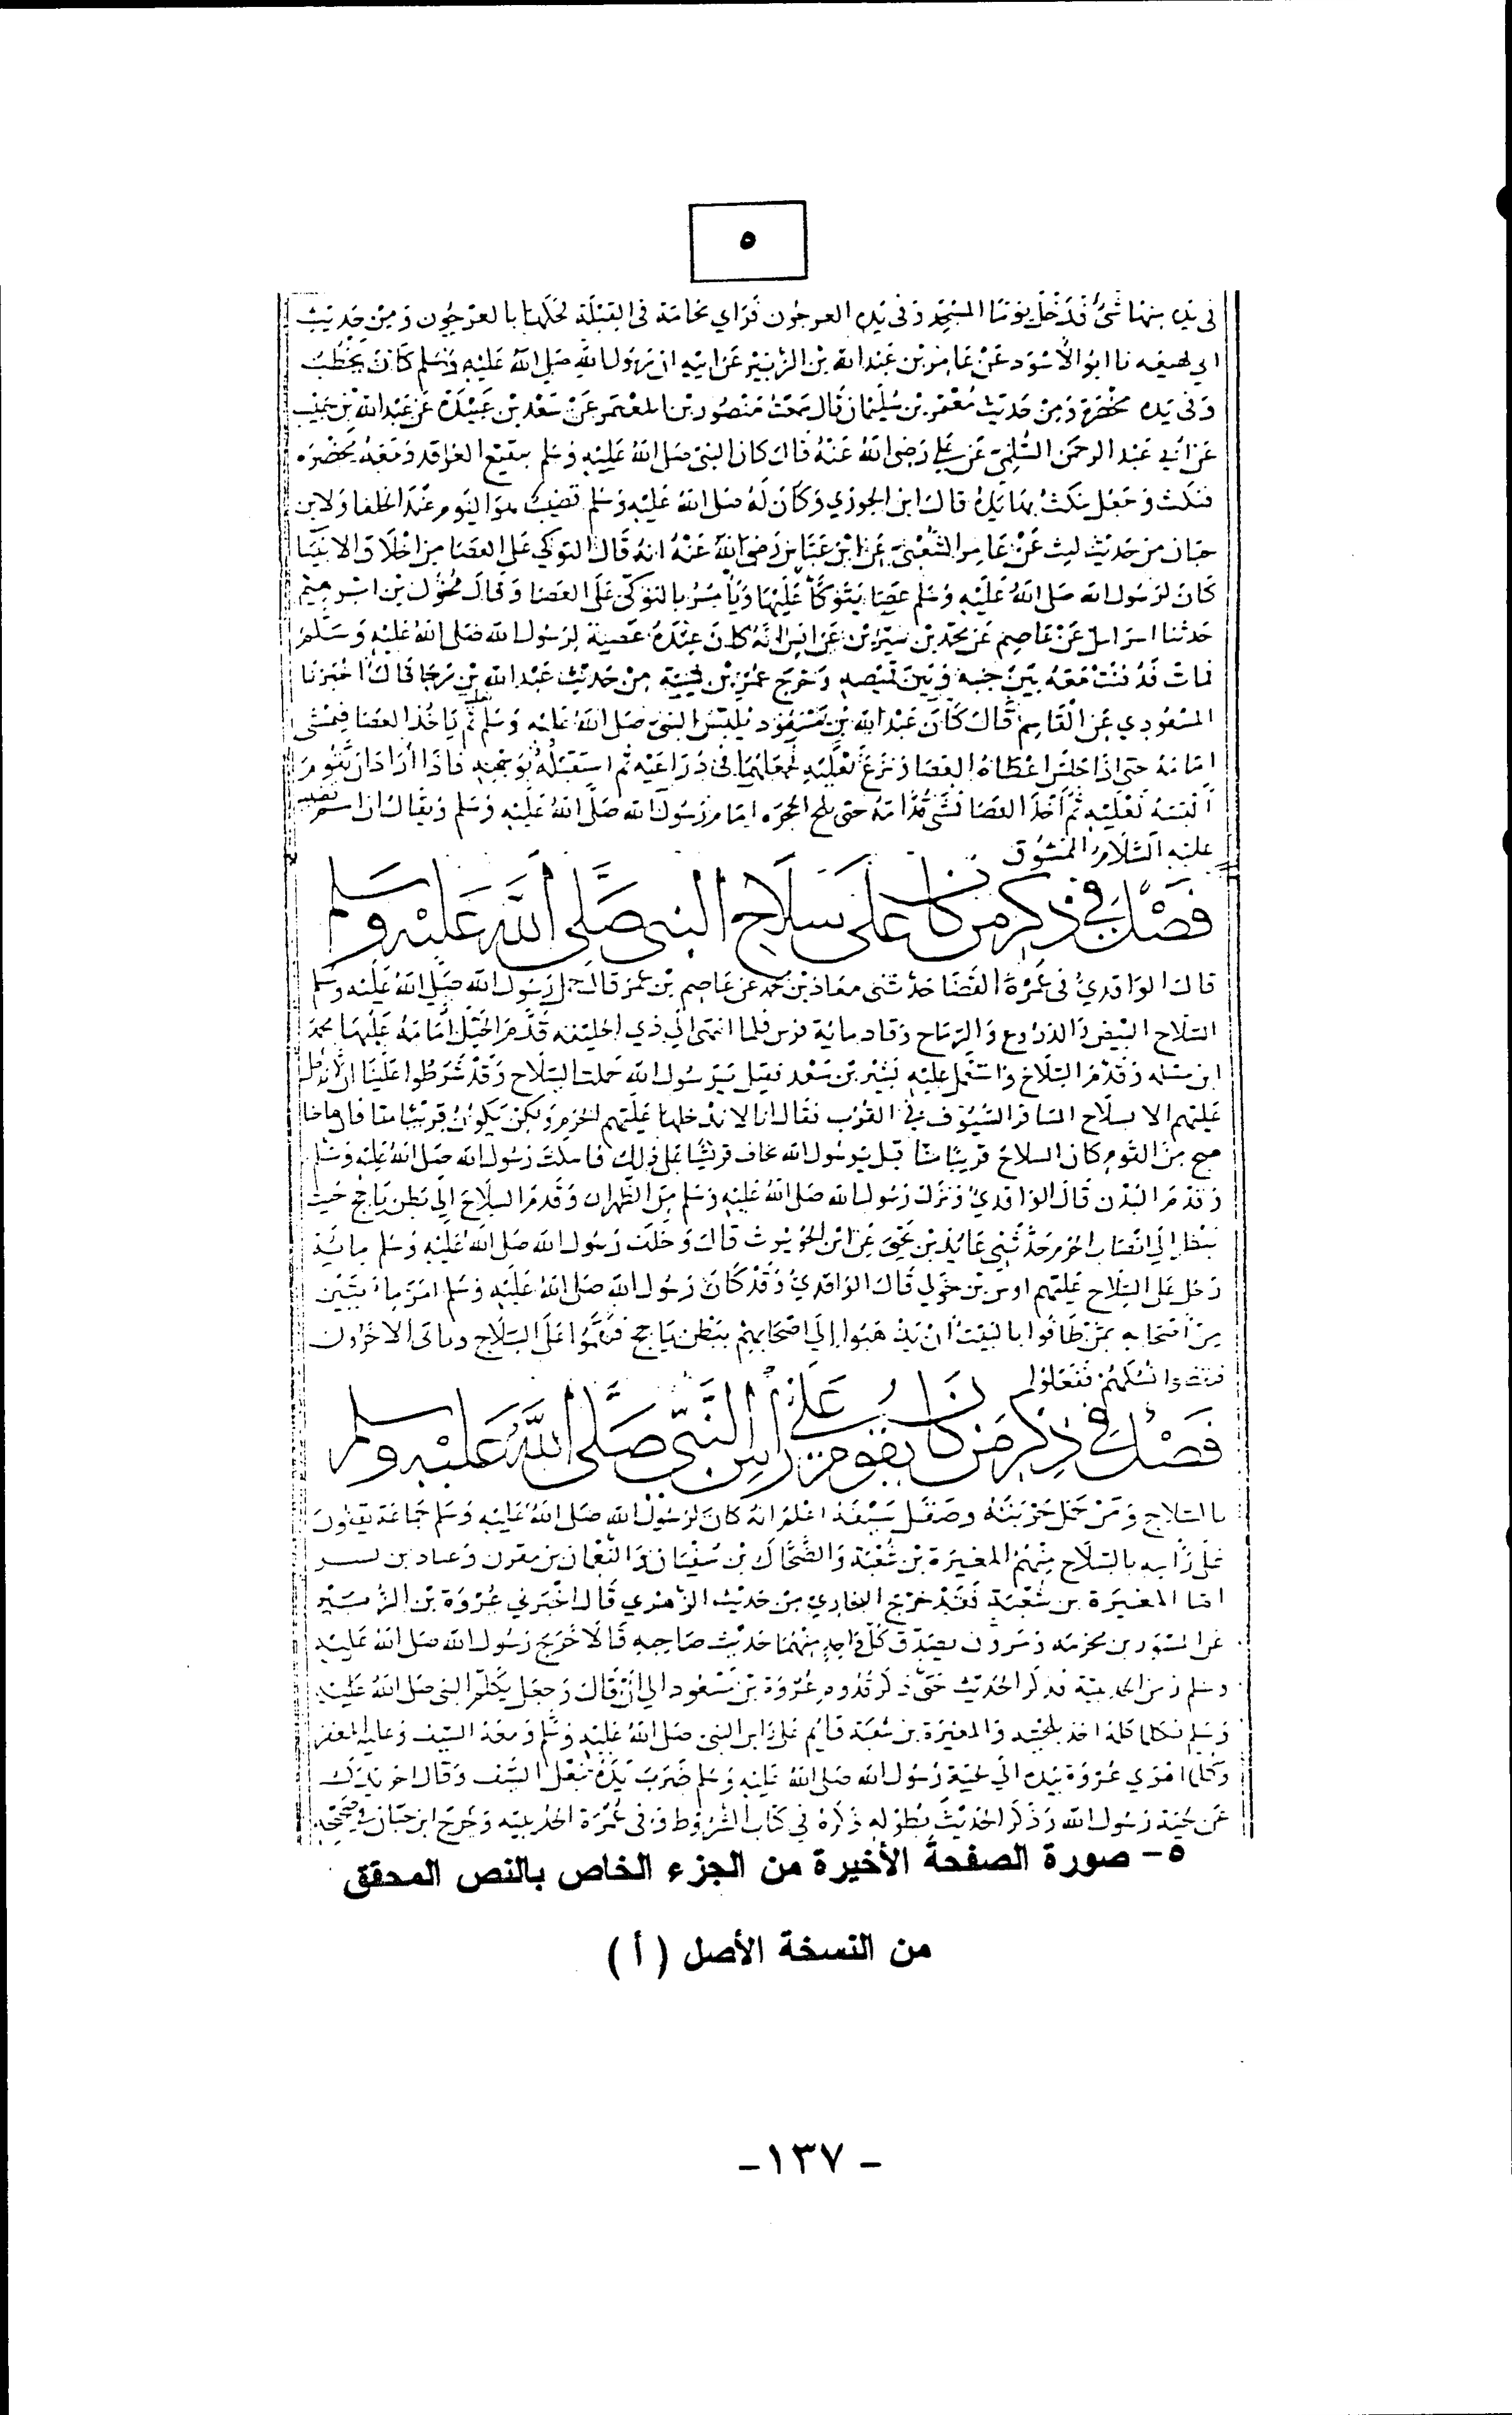 ٥
في يده منها شئ فدخل يوما المسجد وفي يده العرجون فراي نخامة في القبلة فحكها بالعرجون ومن حديث
ابي لهيعه نا ابو الاسود عن عامر بن عبد الله بن الزبير عن ابيه ان رسول الله صلى الله عليه وسلم كان يخطب
وفي يده مخصرة ومن حديث معتمر بن سليمان قال سمعت منصور بن المعتمر عن سعد بن عبيدة عن عبد الله بن حبيب
عن ابي عبد الرحمن السلمي عن علي رضى الله عنه قال كان النبي صلى الله عليه وسلم ببقيع الغرقد ومعه مخصره
فنكت وجعل ينكت بها يده قال ابن الجوزي وكان له صلى الله عليه وسلم قضيب هو اليوم عند الخلفا ولابن
حبان من حديث ليث عن عامر الشعبي عن ابن عباس رضى الله عنه انه قال التوكي على العصا من اخلاق الانبيا
كان لرسول الله صلى الله عليه وسلم عصا يتوكأ عليها ويأمر بالتوكي على العصا وقال مخول بن ابرهيم
حدثنا اسرايل عن عاصم عن محمد بن سيرين عن انس انه كان عنده عصية لرسول الله صلى الله عليه وسلم
فمات فدفنت معه بين جنبه وبين قميصه وخرج عمر بن شبة من حديث عبد الله بن رجا قال اخبرنا
المسعودي عن القاسم قال كان عبد الله بن مسعود يلبس النبي صلى الله عليه وسلم نعليه ثم ياخذ العصا فيمشى
امامه حتى اذا جلس اعطاه العصا ونزع نعليه فجعلهما في ذراعيه ثم استقبله بوجهه فاذا أراد ان يقوم
ألبسه نعليه ثم أخذ العصا فمشى قدامه حتى يلج الحجره امام رسول الله صلى الله عليه وسلم ويقال ان اسم قضيبه
عليه السلام الممشوق
فصل في ذكر من كان على سلاح النبي صلى الله عليه وسلم
قال الواقدي في عمرة القضا حدثنى معاذ بن محمد عن عاصم بن عمر قال حمل رسول الله صلى الله عليه وسلم
السلاح البيض والدروع والرماح وقاد ماية فرس فلما انتهى الي ذي الحليفه قدم الخيل أمامه عليها محمد
ابن مسلمه وقدم السلاح واستعمل عليه بشير بن سعد فقيل يرسول الله حملت السلاح وقد شرطوا علينا ان لا ندخل
عليهم الا بسلاح المسافر السيوف في القرب فقال انا لا ندخلها عليهم الحرم ولكن يكون قريبا منا فان هاجنا
هيج من القوم كان السلاح قريبا منا قيل يرسول الله تخاف قريشا على ذلك فاسكت رسول الله صلى الله عليه وسلم
وقدم البدن قال الواقدي ونزل رسول الله صلى الله عليه وسلم مر الظهران وقدم السلاح الي بطن ياجج حيث
ينظر الي انصاب الحرم حدثني عايذ بن يحيى عن ابن الحويرث قال وخلف رسول الله صلى الله عليه وسلم مايتي
رجل على السلاح عليهم اوس بن خولي قال الواقدي وقد كان رسول الله صلى الله عليه وسلم امر مايتين
من أصحابه ممن طافوا بالبيت أن يذهبوا إلي اصحابهم ببطن ياجج فيقيموا على السلاح ويأتى الاخرون
فيقضوا نسكهم ففعلوا
فصل في ذكر من كان يقوم على راس النبي صلى الله عليه وسلم
بالسلاح ومن حمل حربته وصقل سيفه اعلم انه كان لرسول الله صلى الله عليه وسلم جماعة يقفون
على راسه بالسلاح منهم المغيرة بن شعبة والضحاك بن سفيان والنعمان بن مقرن وعباد بن بشر
اما المغيرة بن شعبة فقد خرج البخاري من حديث الزهري قال اخبرني عروة بن الزبير
عن المسور بن مخرمه ومروان يصدق كل واحد منهما حديث صاحبه قالا خرج رسول الله صلى الله عليه
وسلم زمن الحديبية فذكر الحديث حتى ذكر قدوم عروة بن مسعود الي أن قال وجعل يكلم النبي صلى الله عليه
وسلم فكلما كلمه اخذ بلحيته والمغيرة بن شعبة قايم على راس النبي صلى الله عليه وسلم ومعه السيف وعليه المغفر
وكلما اهوى عروة بيده الي لحية رسول الله صلى الله عليه وسلم ضرب يده بنعل السيف وقال اخر يدك
عن لحية رسول الله وذكر الحديث بطوله ذكره في كتاب الشروط وفي عمرة الحديبيه وخرج ابن حبان في صحيحه
٥- صورة الصفحة الأخيرة من الجزء الخاص بالنص المحقق
من النسخة الأصل ( أ )
- ١٣٧ -